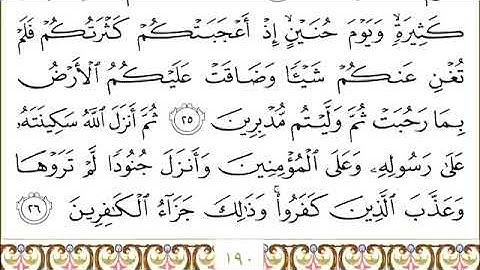 كَثِيرَةٍ وَيَوْمَ حُنَيْنٍ إِذْ أَعْجَبَتْكُمْ كَثْرَتُكُمْ فَلَمْ
تُغْنِ عَنكُمْ شَيْـًٔا وَضَاقَتْ عَلَيْكُمُ ٱلْأَرْضُ
بِمَا رَحُبَتْ ثُمَّ وَلَّيْتُم مُّدْبِرِينَ ٢٥ ثُمَّ أَنزَلَ ٱللَّهُ سَكِينَتَهُۥ
عَلَىٰ رَسُولِهِۦ وَعَلَى ٱلْمُؤْمِنِينَ وَأَنزَلَ جُنُودًا لَّمْ تَرَوْهَا
وَعَذَّبَ ٱلَّذِينَ كَفَرُوا۟ ۚ وَذَٰلِكَ جَزَآءُ ٱلْكَـٰفِرِينَ ٢٦
١٩٠